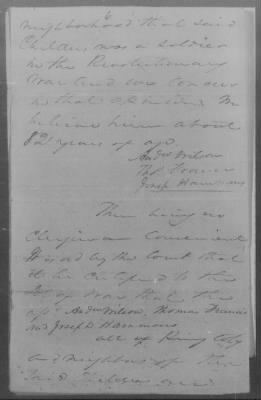 neighborhood that said
Childers was a soldier
in the Revolutionary
War and we concur
in that opinion We
believe him about
82 years of age
Andw Wilson
Thos Francis
Joseph Hammons
There being no
Clergiman Convenient
It is ord by the Court that
it be certified to the
Sec of War that the
afs Andw Wilson, Thomas Francis
and Joseph Hammons
are of King
and neighbors of the
said Childers and